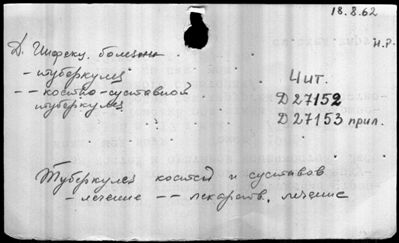 18.8.62
Н.Р.
Д. Инфекц. болезни
- туберкулез
-- костно-суставной
туберкулез
Чит.
Д27152
Д27153 прил.
Туберкулез костей и суставов
- лечение -- лекарств. лечение